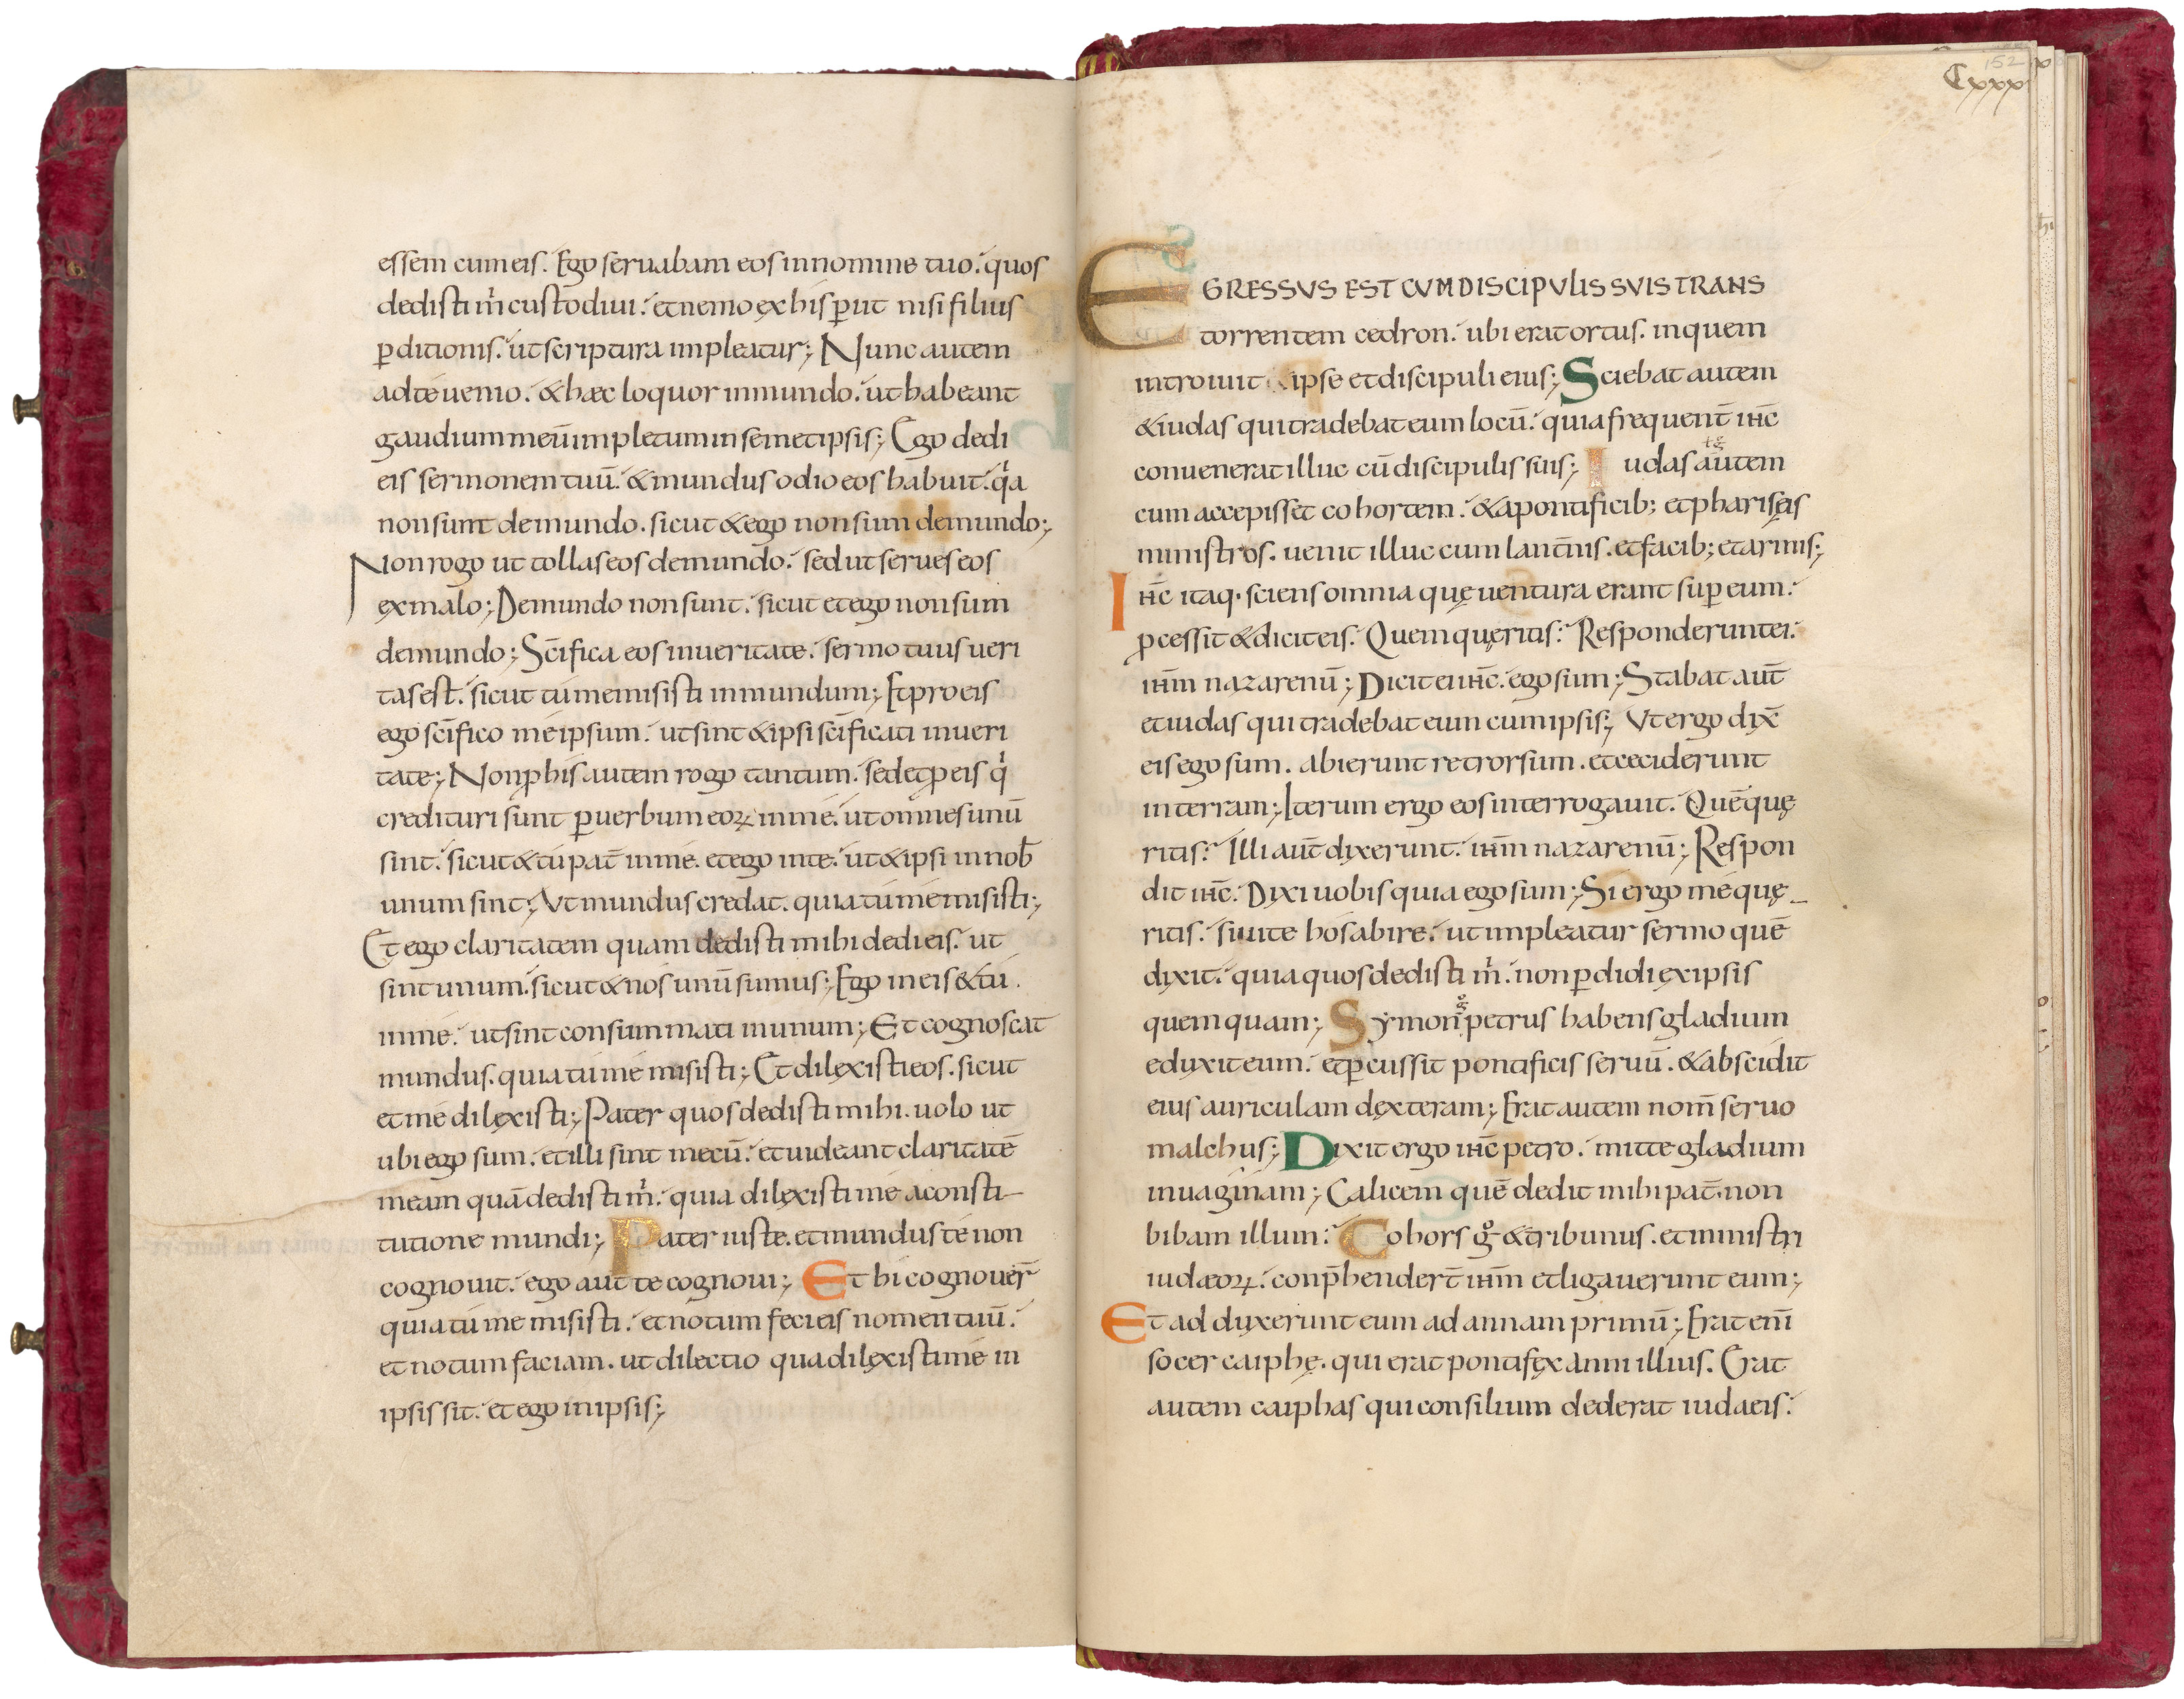 essem cum eis. Ego seruabam eos in nomine tuo. quos
dedisti m̉ custodiui. et nemo ex his p̱iit nisi filius
p̱ditionis. ut scriptura impleatur; Nunc autem
ad te uenio. & hæc loquor in mundo. ut habeant
gaudium meū impletum in semetipsis; Ego dedi
eis sermonem tuū. & mundus odio eos habuit. qͥa
non sunt de mundo. sicut & ego non sum de mundo;
Non rogo ut tollas eos de mundo. sed ut serues eos
ex malo; De mundo non sunt. sicut et ego non sum
de mundo; Sc̄ifica eos in ueritate. sermo tuus ueri
tas est. sicut tu me misisti in mundum; Et pro eis
ego sc̄ifico me ipsum. ut sint & ipsi sc̄ificati in ueri
tate; Non ꝓ his autem rogo tantum. sed et ꝓ eis qͥ
credituri sunt ꝑ uerbum eoꝝ in me. ut omnes unū
sint. sicut & tu pat̄ in me. et ego in te. ut & ipsi in nob̄
unum sint; Vt mundus credat. quia tu me misisti;
Et ego claritatem quam dedisti mihi dedi eis. ut
sint unum. sicut & nos unū sumus; Ego in eis & tu
in me. ut sint consummati in unum; Et cognoscat
mundus. quia tu me misisti; Et dilexisti eos. sicut
et me dilexisti; Pater quos dedisti mihi. uolo ut
ubi ego sum. et illi sint mecū. et uideant claritatē
meam quā dedisti m̉. quia dilexisti me a consti-
tutione mundi; Pater iuste. et mundus te non
cognouit. ego aut̄ te cognoui; Et hi cognouer̄
quia tu me misisti. et notum feci eis nomen tuū.
et notum faciam. ut dilectio qua dilexisti me in
ipsis sit. et ego in ipsis;
152
Cxxx
EGRESSVS EST CVM DISCIPVLIS SVIS TRANS
torrentem cedron. ubi erat ortus. in quem
introiuit ipse et discipuli eius; Sciebat autem
& iudas qui tradebat eum locū. quia frequent̄ ihc̄
conuenerat illuc cū discipulis suis; Iudas autem
cum accepisset cohortem. & a pontificib; et pharisęis
ministros. uenit illuc cum lant̄nis. et facib; et armis;
Ihc̄ itaq· sciens omnia quę uentura erant suꝑ eum.
ꝓcessit & dicit eis. Quem quęritis. Responderunt ei.
ihm̄ nazarenū; Dicit ei ihc̄. ego sum; Stabat aut̄
et iudas qui tradebat eum cum ipsis; Vt ergo dix̄
eis ego sum. abierunt retrorsum. et ceciderunt
in terram; Iterum ergo eos interrogauit. Quē quę
ritis. Illi aut̄ dixerunt. ihm̄ nazarenū; Respon
dit ihc̄. Dixi uobis quia ego sum; Si ergo me quę_
ritis. sinite hos abire. ut impleatur sermo quē
dixit. quia quos dedisti m̉. non ꝑdidi ex ipsis
quemquam; Symon g̊ petrus habens gladium
eduxit eum. et ꝑcussit pontificis seruū. & abscidit
eius auriculam dexteram; Erat autem nom̄ seruo
malchus; Dixit ergo ihc̄ petro. mitte gladium
in uaginam; Calicem quē dedit mihi pat̄. non
bibam illum. Cohors g̊ & tribunus. et ministri
iudæoꝝ. conp̄hendert̄ ihm̄ et ligauerunt eum;
Et adduxerunt eum ad annam primū; Erat eni̅
socer caiphę. qui erat pontifex anni illius. Erat
autem caiphas qui consilium dederat iudaeis.